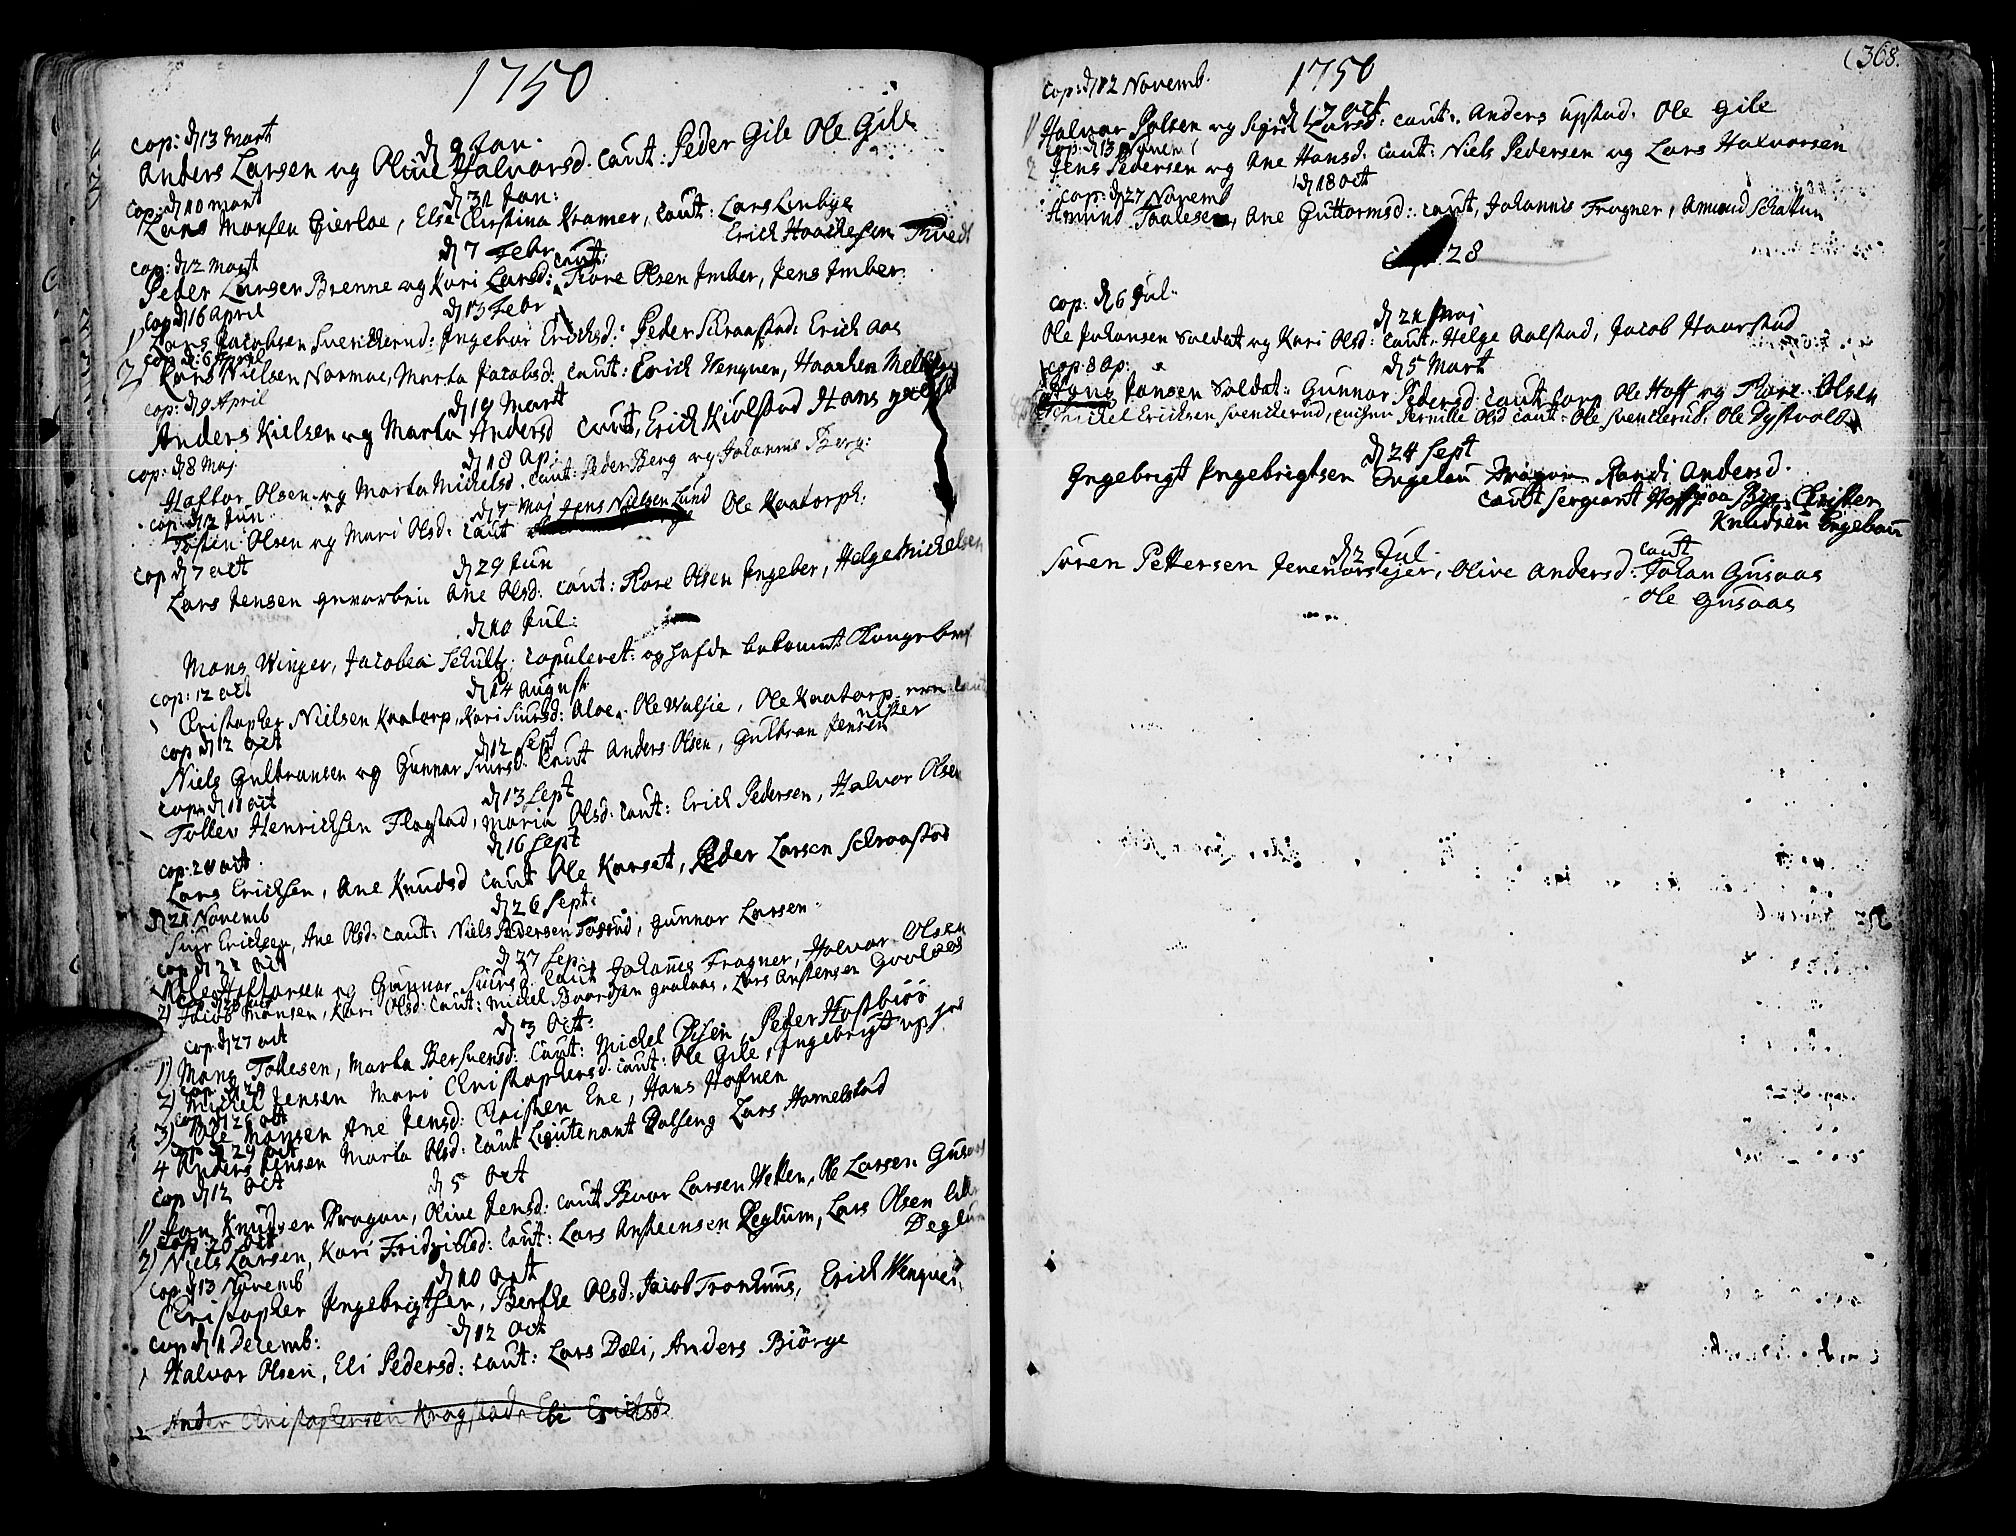 1750
cop: d 13 Mart
d 9 Jan.
Anders Larsen og Olive Halvorsd. caut: Peder Gile Ole Gile
cop: d 10 mart
d 31 Jan:
Lars Monsen Gierloe, Else Cirstina Kramer, caut: Lars Linbye
Erick Haachesen Tvedt
cop: d 2 Mart
d 7 Febr
caut:
Peder Larsen Brenne og Kari Larsd: Tore Olsen Imber, Jens Imber
cop d 16 April
d 13 Febr
1) Lars Jacobsen Svenckerud: Ingebor Ericksd: Peder Skraastad: Erich Aas
cop d: 6 April
2) Lars Nielsen Normoe, Marta Jacobsd: caut: Erich Wenguen, Haachen
cop: d 9 April
d 19 Mart
Anders Kielsen og Marta Andersd caut, Erich Kiölstad Hans
cop: d 8 Maj
d 18 Ap:
Haftor Olsen og Marta Mickelsd. caut: Peder Berg og Johannis Berg:
cop: d 2 Jun
d 7 Maj Jens Nielsen Lund
Tosten Olsen og Mari Olsd: caut Ole Kaatorp:
cop d 7 oct
d 29 Jun
Lars Jensen gevorben Ane Olsd: caut: Tore Olsen Ingeber, Helge Mickelsen
d 10 Jul:
Mons Winger, Jacobea Schultz; copuleret: og hafde bekomet Kongebref
cop: 12 oct
d 14 August
1 Christopher Nielsen Kaatorp, Kari Siursd: Aloe. Ole Walsie, Ole Kaatorp
cop d 12 oct
d 12 Sept
Niels Gulbransen og Gunnor Siursd: caut Anders Olsen, Gulbran Jensen
cop: d 11 oct
d 13 Sept
Tollev Henrichsen Flagstad, Maria Olsd: caut: Erich Pedersen, Halvor Olsen
cop: 20 oct
d 16 Sept
Lars Erichsen, Ane Knudsd caut Ole Korset, Peder Larsen Schraastad
d 21 Novemb
d 26 Sept:
Siur Erichsen, Ane Olsd: caut: Niels Pedersen Tossud, Gunnar Larsen:
cop d 31 oct
d 27 Sep:
Ole Haftorsen og Gunnor Siursd: caut Johannes Fragner, Halvor Olsen
2) Jacob Monsen, Kari Olsd: caut: Michel Baardsen Goulaas, Lars Anstensen Goulaas
cop: d 27 oct
d 3 Oct:
1) Mons Tollesen, Marta Bersvensd: caut: Michel Olsen, Peder Hostbiör
cop: d 29
2) Michel Jensen Mari Christophersd. caut: Ole Gile, Ingebrigt
cop: d 26 oct
3) Ole Monsen Ane Jensd: Christen Ene, Hans Hofnen
cop d 29 oct
4 Anders Jensen Marta Olsd: caut Lieutenant Dalseng Lars Hamelstad
cop d 12 oct
d 5 Oct
1) Jon Knudsen Dragon, Olive Jensd: caut Baar Larsen Wetten, Ole Larsen
cop: 26 oct
2) Niels Larsen, Kari Fridrichsd: caut: Lars Anstensen Deglum, Lars Olsen
Deglum
cop: d 13 Novemb
d 10 Oct
Christopher Ingebrigtsen, Berthe Olsd: Jacob Tronhuus, Erich Wenguen
cop d 1 Decemb:
d 12 Oct
1 Halvor Olsen, Eli Pedersd: caut: Lars Dæli, Anders Biörge
2 Ander Christophersen Krogstad, Eli Erichsd.
(368.
1750
cop: d 12 Novemb.
d 17 oct
1) Halvor Polsen og Sigrid Larsd: caut:. Anders Upstad. Ole Gile
cop: d 13 Novem
2 Jens Pedersen og Ane Hansd. caut: Niels Pedersen og Lars Halvorsen
cop: d 27 Novemb
d 18 oct
Amund Taalesen, Ane Guttormsd: caut, Johannis Fragner, Amund Schattun
28
cop: d 6 Jul:
d 21 Maj
Ole Johansen Soldat og Kari Olsd: caut: Helge Aalstad, Jacob Haarstad
cop: 8 Ap:
d 5 Mart
Hans Jansen Soldat: Gunnor Pedersd caut corp Ole Hoff og Tore Olsen
Mickel Ericksen Svenckerud, Pernille Olsd caut: Ole Svenckerud. Ole Dystvold
d 24 Sept
Ingebrigt Ingebrigtsen Engelau Dragon Randi Andersd.
caut Sergiant Hoff paa Byg, Christen
Knudsen Engelaun
d 2 Jul.
caut
Sören Pettersen, Olive Andersd: Johan Gusaas
Ole Gusaas